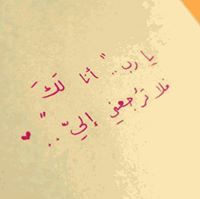 يا رب .. " أنا لَكَ
فلا تُرجعني إليّ .. "